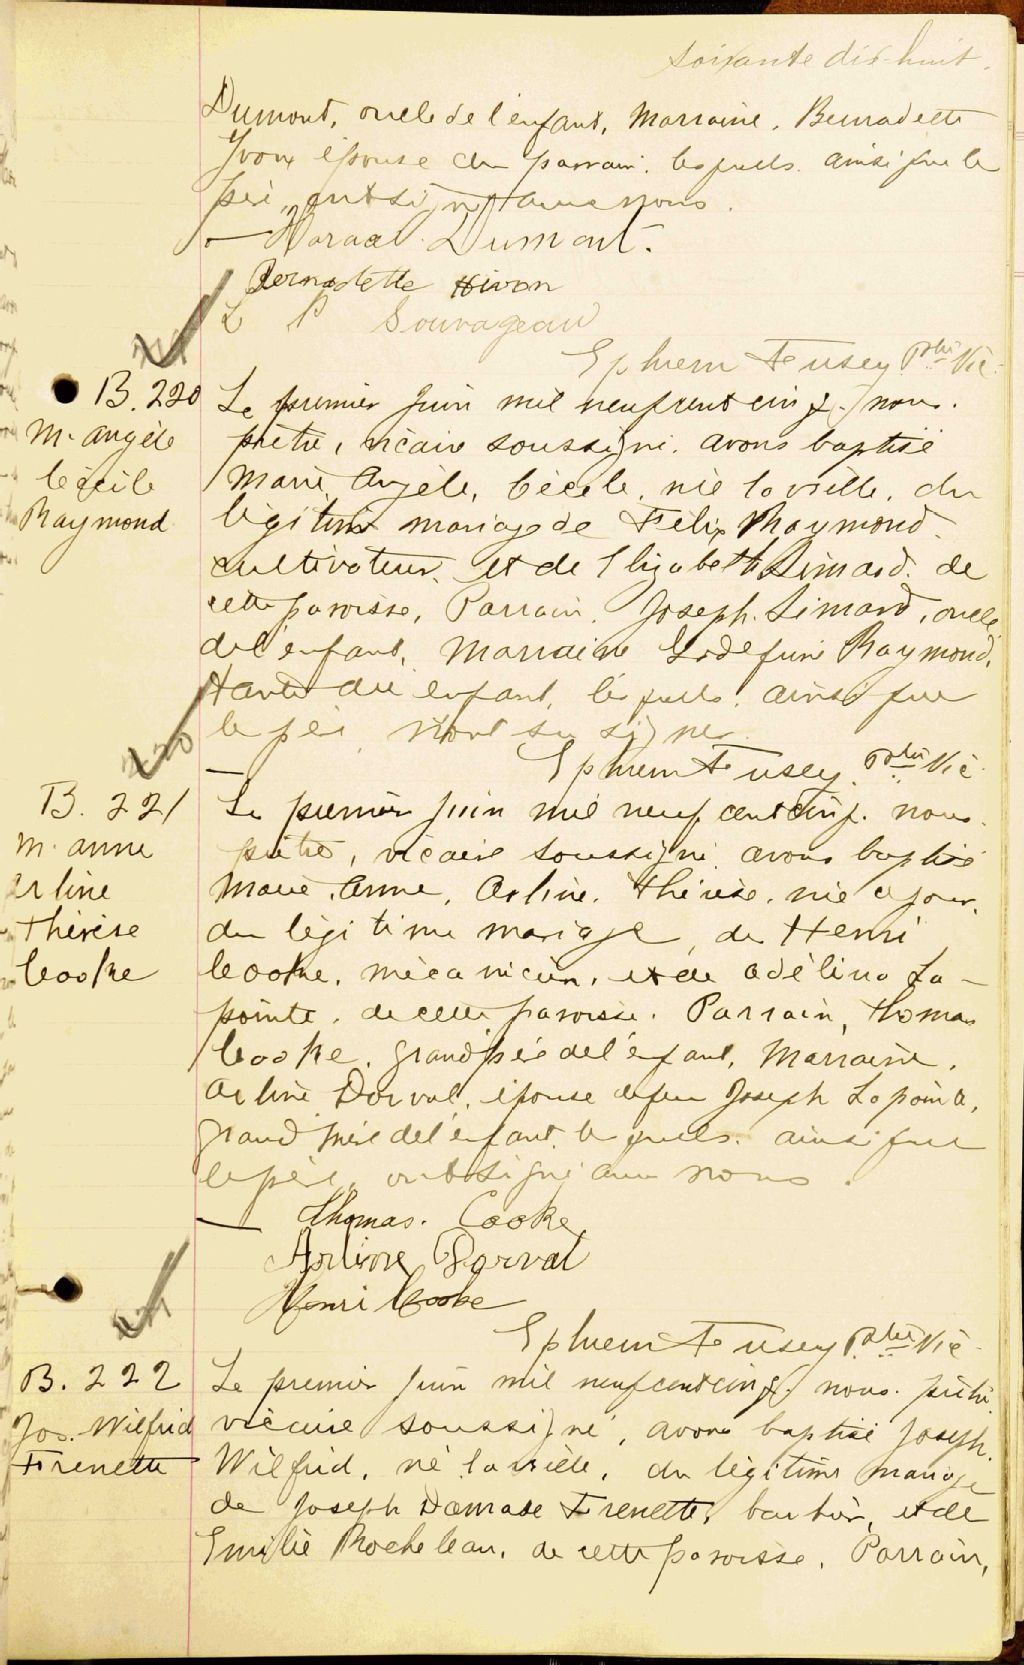 soixante dix-huit.
Dumont, oncle de l'enfant, Marraine, Bernadette
Yvon épouse du parrain. lesquels ainsi que le
père, ont signé avec nous.
Horace Dumont.
Bernadette Hivon
L P Souvageau
Ephrem Fusey Ptre Vic.
B. 220
M. Angèle
Cécile
Raymond
Le premier juin mil neuf cent cinq. nous.
prêtre, vicaire soussigné. avons baptisé
Marie, Angèle, Cécile, née la veille, du
légitime mariage de Félix Raymond.
cultivateur, et de Elizabeth Simard. de
cette paroisse, Parrain, Joseph Simard, oncle
de l'enfant, Marraine Raymond,
tante de l'enfant, lesquels ainsi que
le père, n'ont su signer.
Ephrem Fusey Ptre Vic.
220
B. 221
M. Anne
Arline
Thérèse
Cooke
Le premier juin mil neuf cent cinq. nous.
prêtre, vicaire soussigné avons baptisé
Marie, Anne, Arline, Thérèse, née ce jour,
du légitime mariage, de Henri
Cooke, mécanicien, et de Adélina La-
pointe, de cette paroisse. Parrain, Thomas
Cooke, grand père de l'enfant, Marraine,
Arline Dorval, épouse de feu Joseph Lapointe,
grand mère de l'enfant. lesquels ainsi que
le père, ont signé avec nous.
Thomas. Cooke
Arline Dorval
Henri Cooke
Ephrem Fusey Ptre Vic.
221
B. 222
Jos. Wilfrid
Frenette
Le premier juin mil neuf cent cinq. nous. prêtre
vicaire soussigné, avons baptisé Joseph.
Wilfrid, né la veille, du légitime mariage
de Joseph Damase Frenette, barbier, et de
Emilie Rocheleau, de cette paroisse, Parrain,